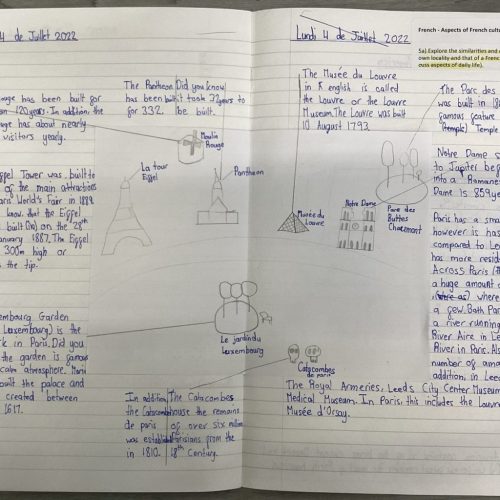 4 de Juillet 2022
ouge has been built for
120 years. In addition, the
ouge has about nearly
visitors yearly.
The Pantheon
has been built
for 332.
Did you know
it took 32 years to
be built.
Moulin
Rouge
La tour
Eiffel
Pantheon
Tower was built to
of the main attractions
World's Fair in 1889.
know that the Eiffel
built On) on the 28th
January 1887. The Eiffel
300m high or
the tip.
embourg Garden
Luxembourg) is the
rk in Paris. Did you
the garden is famous
calm atmosphere. Marie
built the palace and
created between
1617.
Le jardin du
Luxembourg
In addition
the Catacombes
de paris
was established
in 1810.
The Catacombes
house the remains
of over six million
Parisians from the
18th Century.
Lundi 4 de Juillet 2022
The Musée du Louvre
in english is called
the Louvre or the Louvre
Museum. The Louvre was built
10 August 1793.
Musée du
Louvre
Notre Dame
Parc des
Buttes
Chaumont
Catacombes
de paris
The Royal Armeries, Leeds City Center Museum
Medical Museum. In Paris, this includes the Louvre
Musée d'Orsay.
French - Aspects of French cultu
5a) Explore the similarities and
own locality and that of a French
cuss aspects of daily life).
The Parc des
was built in 18
famous feature
(temple) Temple
Notre Dame
to Jupiter beg
into a Romanes
Dame is 859 ye
Paris has a sma
however is has
compared to Le
has more resid
Across Paris
a huge amount
where
a few. Both Par
a river running
River Aire in Le
River in Paris. Als
number of
addition, in Lee